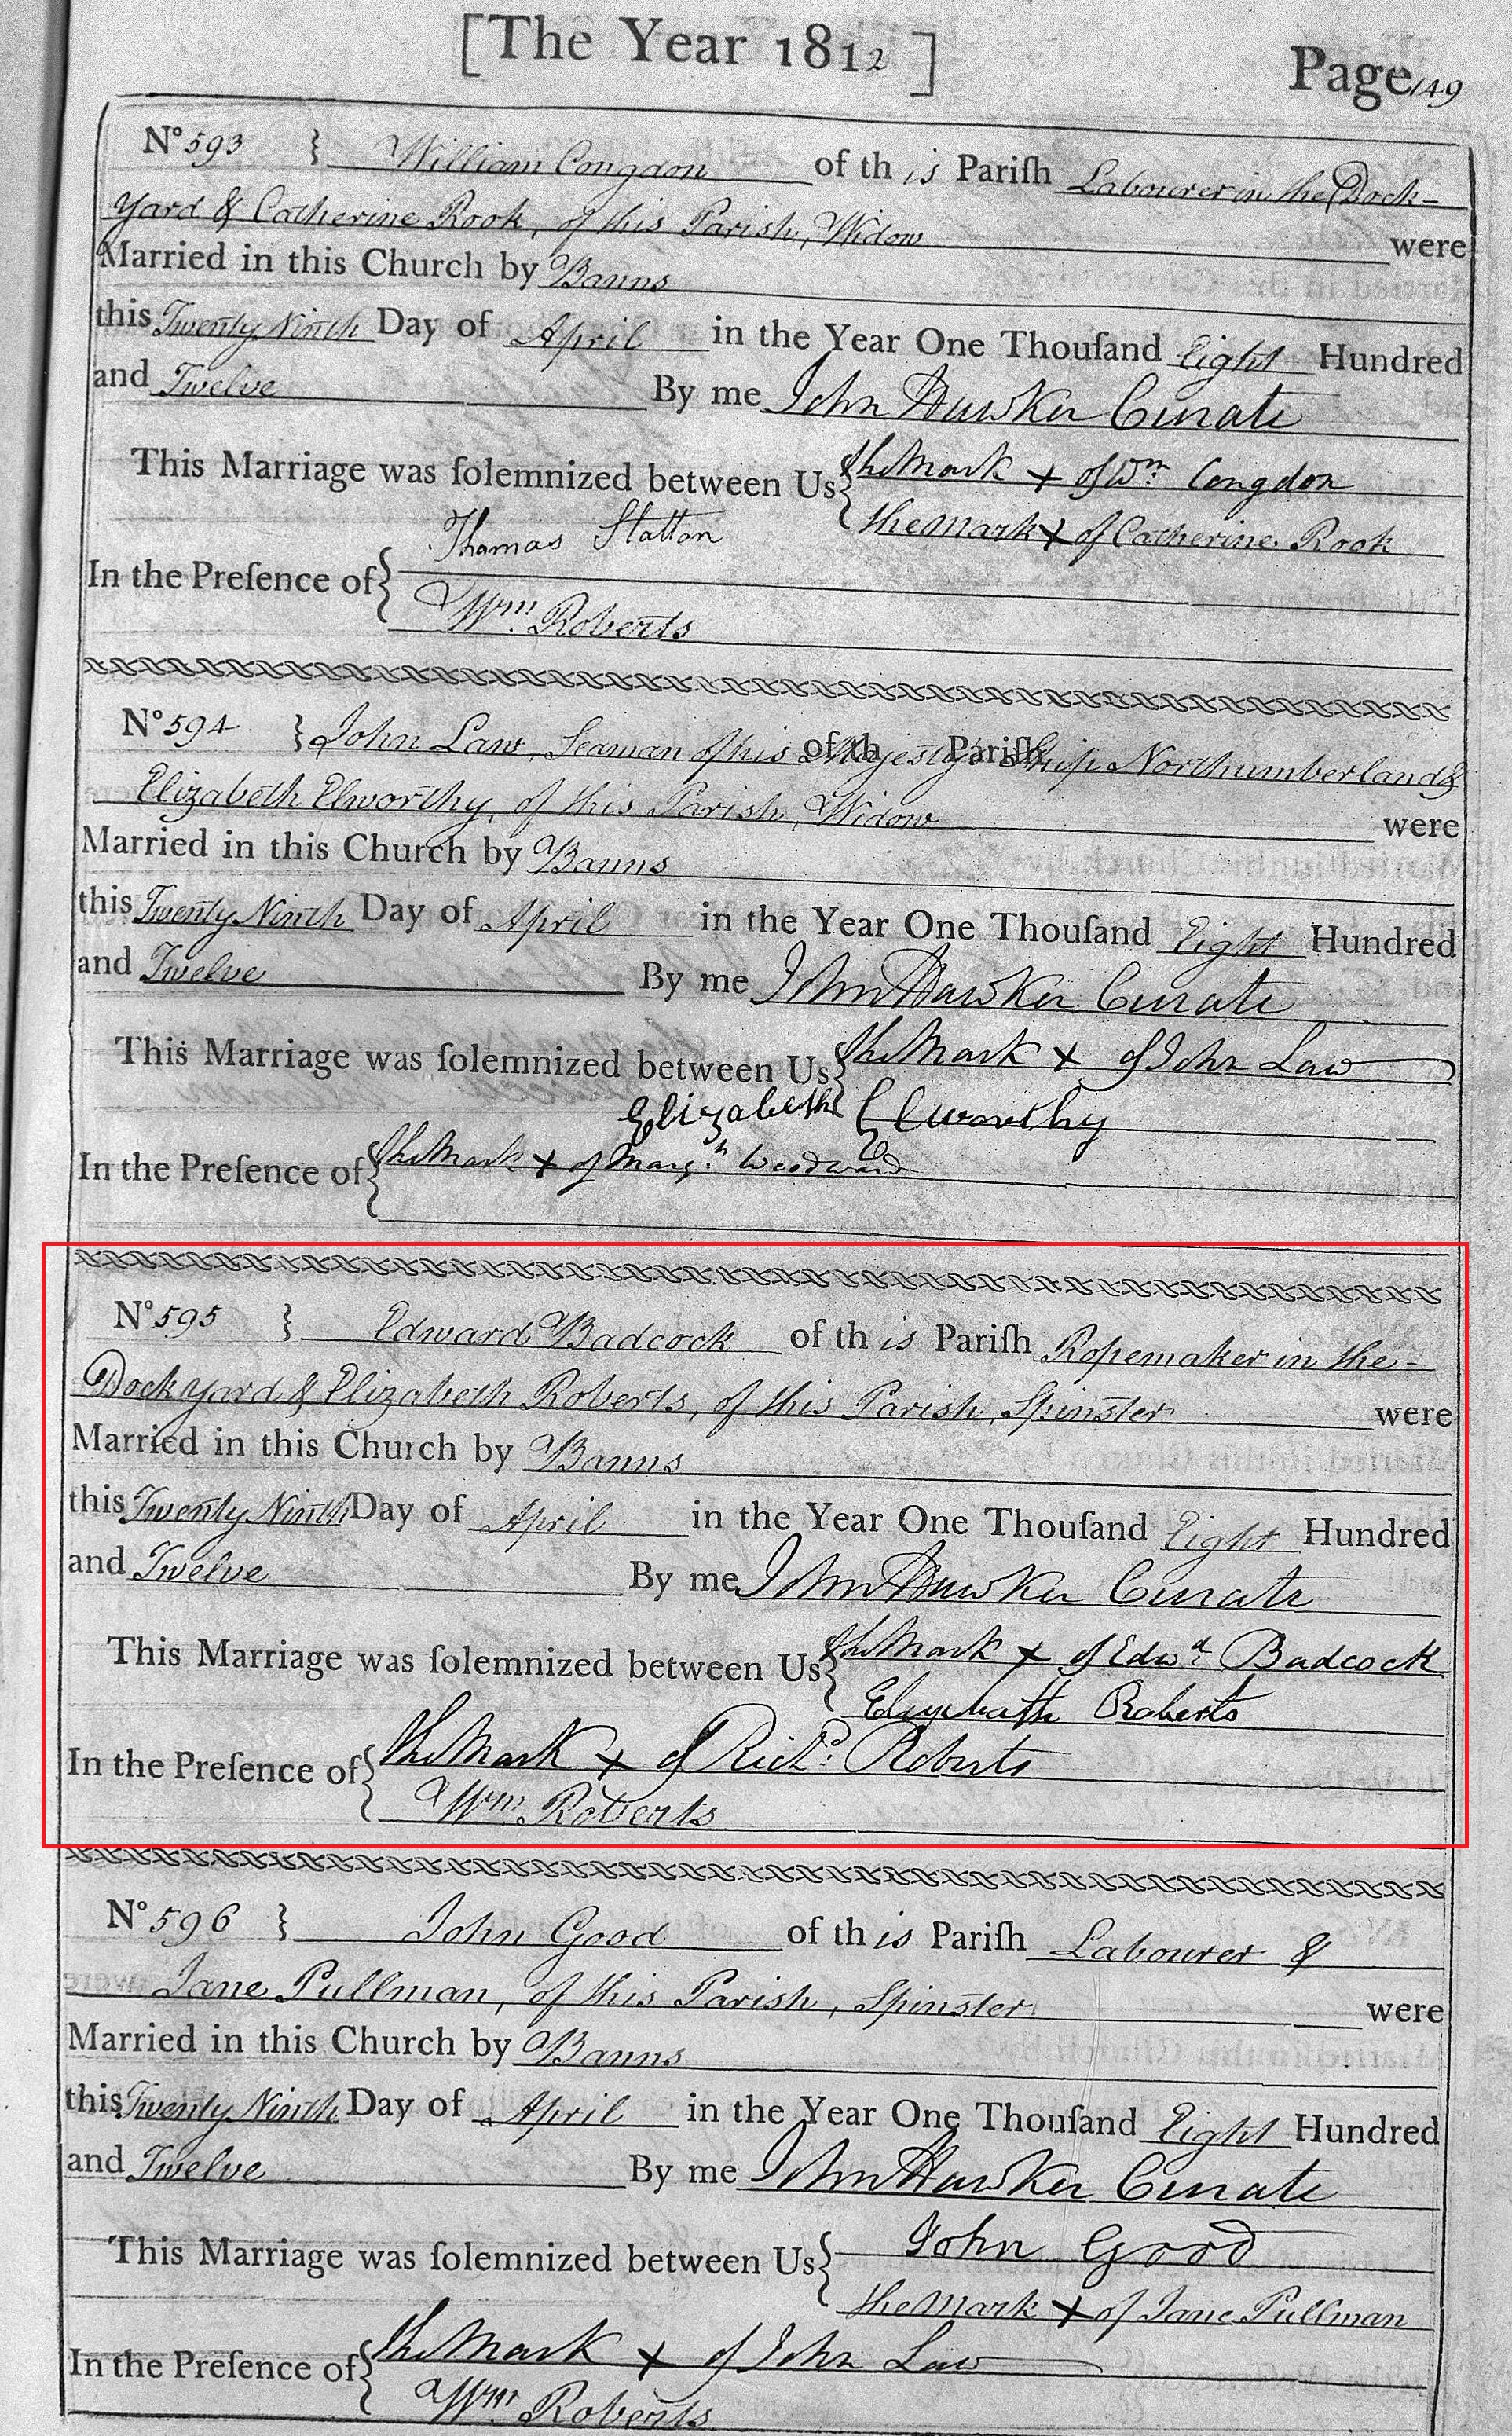 [The Year 1812]
Page 149
No 593 } William Congdon of this Pariſh Labourer in the Dock-
Yard & Catherine Rook, of this Parish, Widow were
Married in this Church by Banns
this Twenty Ninth Day of April in the Year One Thouſand Eight Hundred
and Twelve By me John Hawker Curate
This Marriage was ſolemnized between Us { the Mark + of Wm Congdon
the Mark X of Catherine Rook
In the Preſence of { Thomas Statton
Wm. Roberts
No 594 } John Law, Seaman of his Majesty's Ship Northumberland &
of th Pariſh
Elizabeth Elworthy, of this Parish, Widow were
Married in this Church by Banns
this Twenty Ninth Day of April in the Year One Thouſand Eight Hundred
and Twelve By me John Hawker Curate
This Marriage was ſolemnized between Us { the Mark + of John Law
Elizabeth Elworthy
In the Preſence of { the Mark + of Marg.h Woodward
No 595 } Edward Badcock of this Pariſh Ropemaker in the-
Dock yard & Elizabeth Roberts, of this Parish, Spinster were
Married in this Church by Banns
this Twenty Ninth Day of April in the Year One Thouſand Eight Hundred
and Twelve By me John Hawker Curate
This Marriage was ſolemnized between Us { the Mark + of Edwd. Badcock
Elizebath Roberts
In the Preſence of { the Mark + of Richd. Roberts
Wm. Roberts
No 596 } John Good of this Pariſh Labourer &
Jane Pullman, of this Parish, Spinster were
Married in this Church by Banns
this Twenty Ninth Day of April in the Year One Thouſand Eight Hundred
and Twelve By me John Hawker Curate
This Marriage was ſolemnized between Us { John Good
the Mark X of Jane Pullman
In the Preſence of { the Mark + of John Law
Wm Roberts